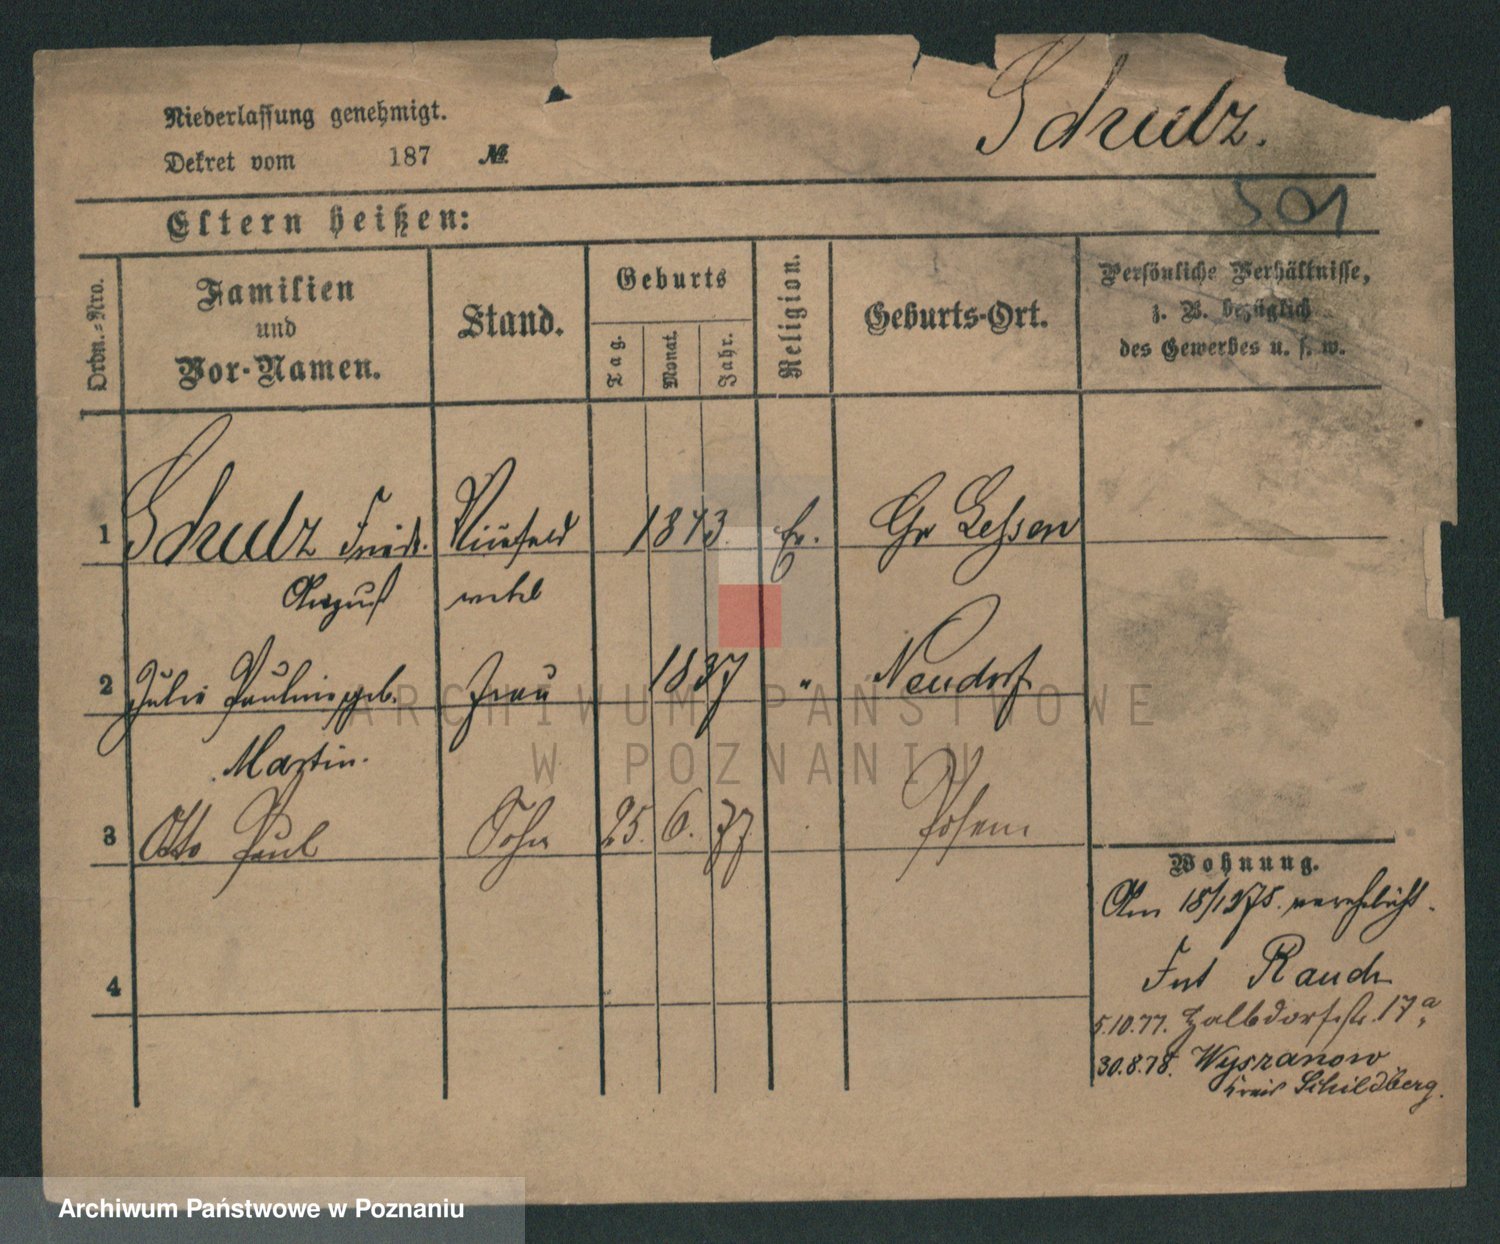 Niederlassung genehmigt.
Dekret vom 187 №
Schulz.
501
Eltern heißen:
Ordn.-Nro.
Familien
und
Vor-Namen.
Stand.
Geburts
Tag.
Monat.
Jahr.
Religion.
Geburts-Ort.
Persönliche Verhältnisse,
z. B. bezüglich
des Gewerbes u. s. w.
1 Schulz Friedr. 1843. Ev. Gr Lessen
August
2 Julie Pauline geb. Frau 1837 " Neudorf
Martin.
3 Otto Paul Sohn 25. 6. 77 Posen
4
Wohnung.
Am verehelicht.
Fort Rauch
5.10.77. Halbdorfstr. 17a,
30.8.78. Wyszanow
Kreis Schildberg.
ARCHIWUM PAŃSTWOWE
W POZNANIU
Archiwum Państwowe w Poznaniu